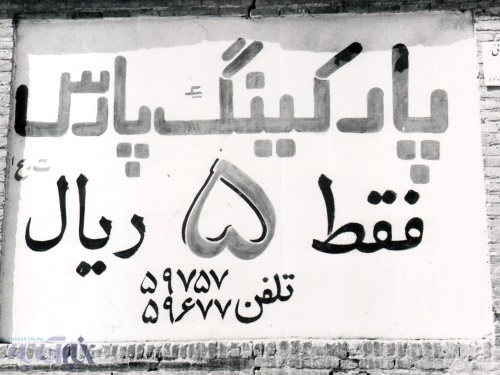 پارکینگ پارس
فقط ۵ ریال
تلفن ۵۹۷۵۷
۵۹۶۷۷